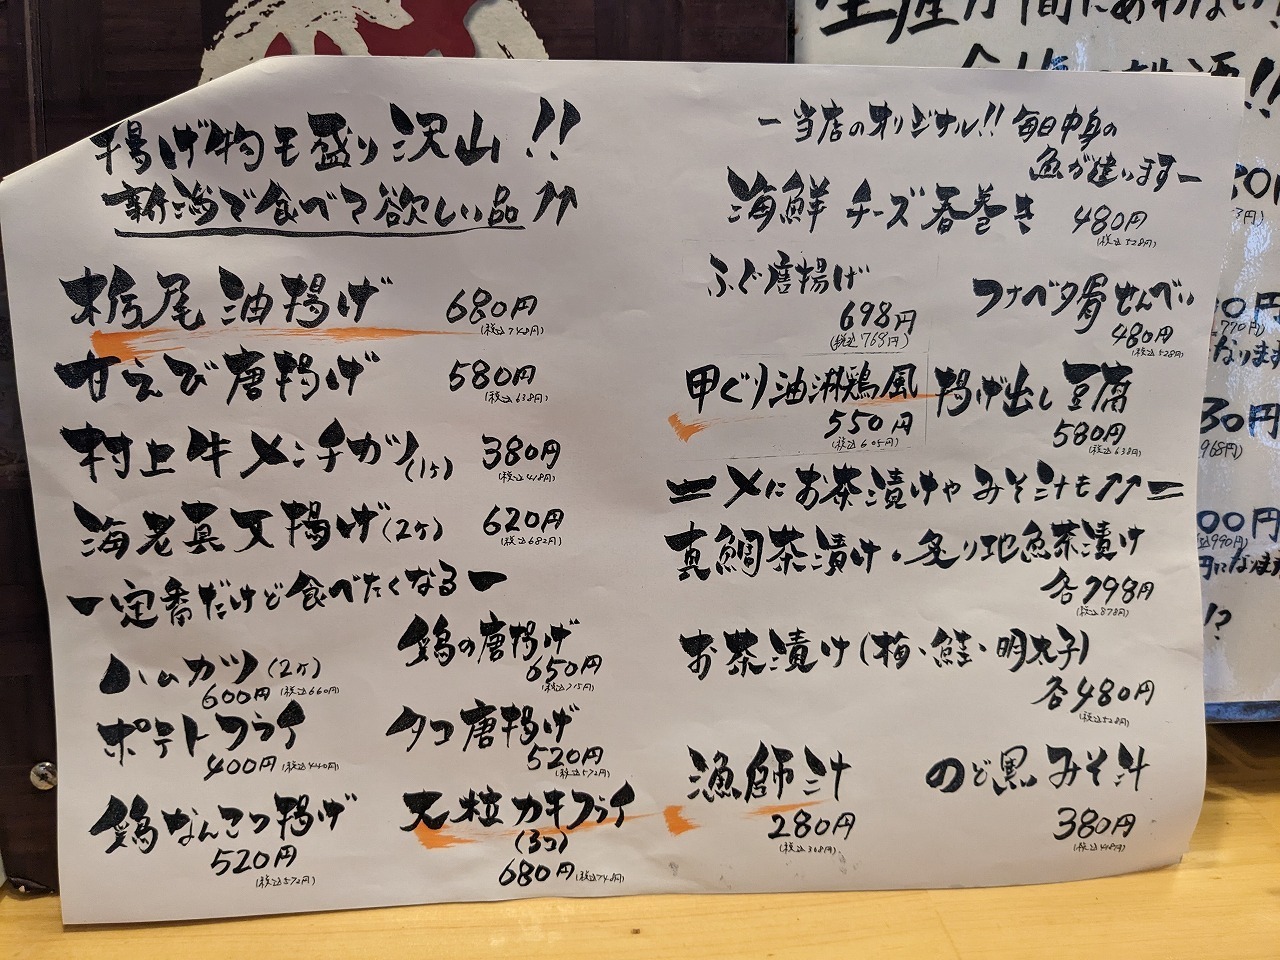 揚げ物も盛り沢山!!
新潟で食べて欲しい品↑↑
栃尾油揚げ 680円
(税込748円)
甘えび唐揚げ 580円
(税込638円)
村上牛メンチカツ(1ヶ) 380円
(税込418円)
海老真丈揚げ(2ヶ) 620円
(税込682円)
ー定番だけど食べたくなるー
ハムカツ(2ヶ)
600円(税込660円)
鶏の唐揚げ
650円
(税込715円)
ポテトフライ
400円(税込440円)
タコ唐揚げ
520円
(税込572円)
鶏なんこつ揚げ
520円
(税込572円)
大粒カキフライ
(3コ)
680円(税込748円)
ー当店のオリジナル!!毎日中身の
魚が違いますー
海鮮チーズ春巻き 480円
(税込528円)
ふぐ唐揚げ
698円
(税込768円)
フナベタ骨せんべい
480円
(税込528円)
甲ぐり油淋鶏風
550円
(税込605円)
揚げ出し豆腐
580円
(税込638円)
=〆にお茶漬けやみそ汁も↑↑=
真鯛茶漬け・炙り地魚茶漬け
各798円
(税込878円)
お茶漬け(梅・鮭・明太子)
各480円
(税込528円)
漁師汁
280円
(税込308円)
のど黒みそ汁
380円
(税込418円)
生産が間にあわない!
770円)
なります
30円
968円)
00円
990円)
円になります
!?